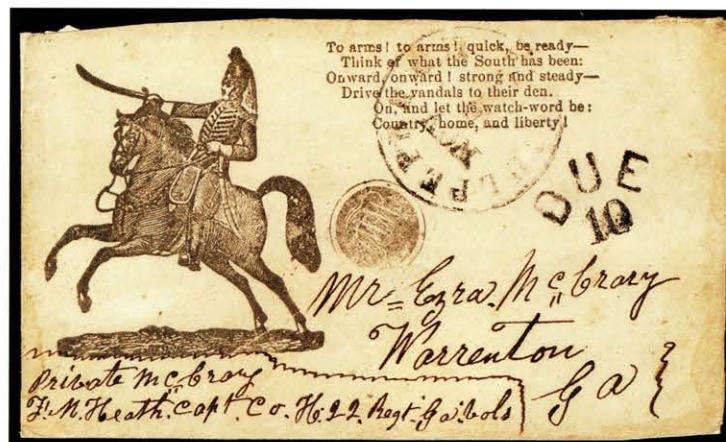 To arms! to arms! quick, be ready—
Think of what the South has been:
Onward, onward! strong and steady—
Drive the vandals to their den.
On, and let the watch-word be:
Country, home, and liberty!
DUE
10
Mr= Ezra. Mc,,Crary
Warrenton
Ga
Private Mc,,Crary
F. M. Heath. Capt. Co. H. 22. Regt. Ga. vols